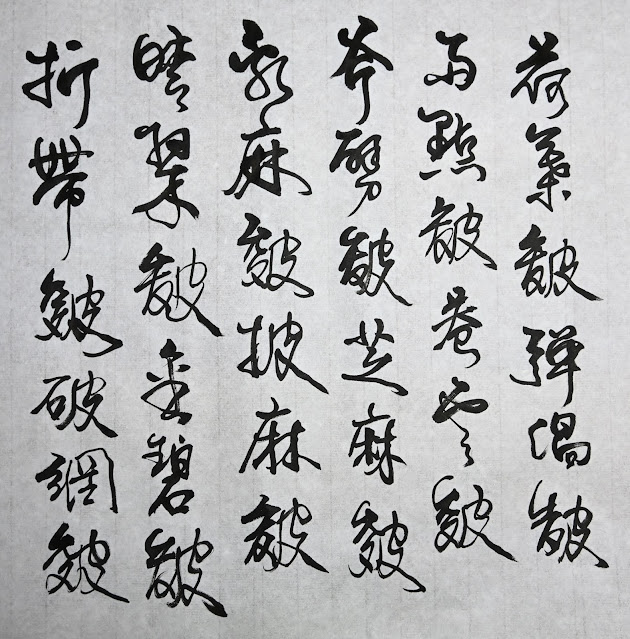 荷葉皴彈渦皴
雨點皴卷雲皴
斧劈皴芝麻皴
亂麻皴披麻皴
翠皴金碧皴
折帶皴破網皴